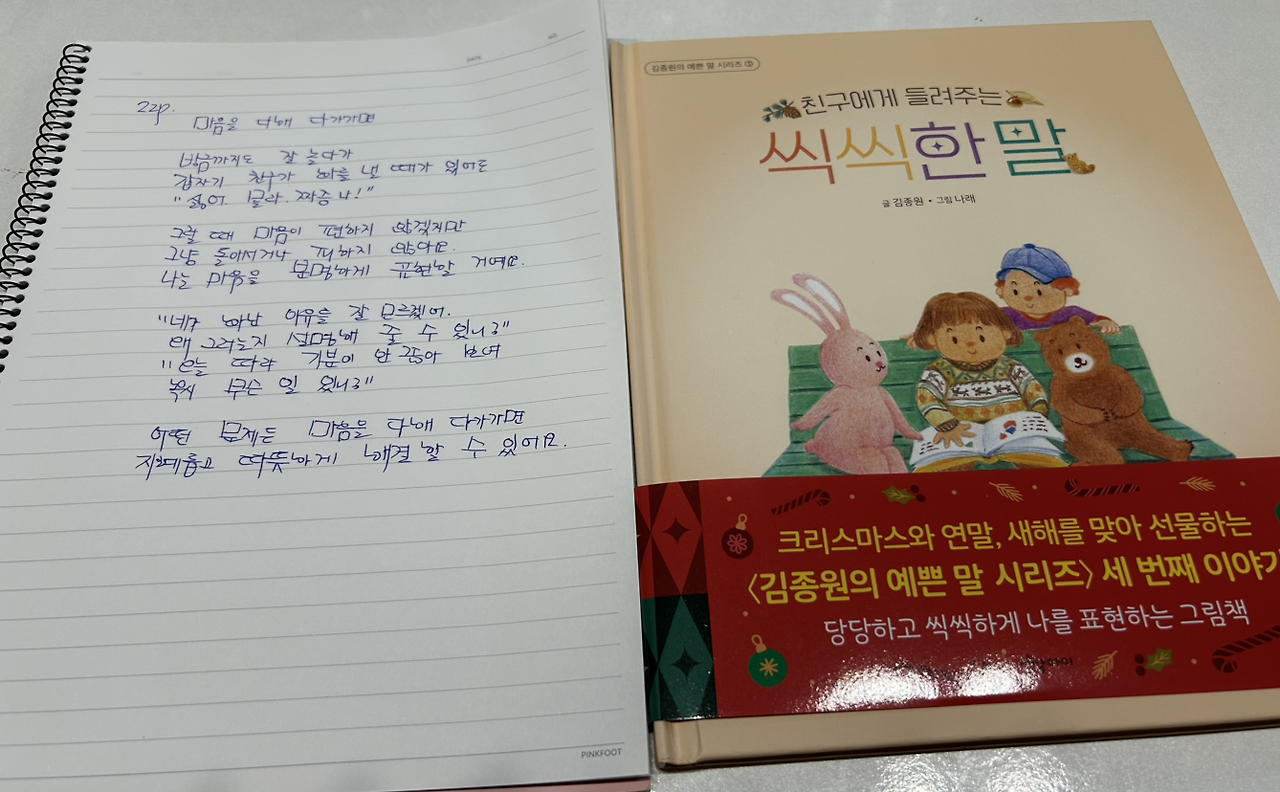 DATE
NO
22p.
마음을 다해 다가가면
방금까지도 잘 놀다가
갑자기 친구가 화를 낼 때가 있어요
"싫어. 몰라. 짜증나!"
그럴 때 마음이 편하지 않겠지만
그냥 돌아서거나 피하지 않아요.
나는 마음을 분명하게 표현할 거예요.
"네가 화난 이유를 잘 모르겠어.
왜 그러는지 설명해 줄 수 있니?"
"오늘 따라 기분이 안 좋아 보여
혹시 무슨 일 있니?"
어떤 문제든 마음을 다해 다가가면
지혜롭고 따뜻하게 해결할 수 있어요.
PINKFOOT
김종원의 예쁜 말 시리즈 ③
친구에게 들려주는
씩씩한 말
글 김종원 • 그림 나래
크리스마스와 연말, 새해를 맞아 선물하는
〈김종원의 예쁜 말 시리즈〉 세 번째 이야기
당당하고 씩씩하게 나를 표현하는 그림책